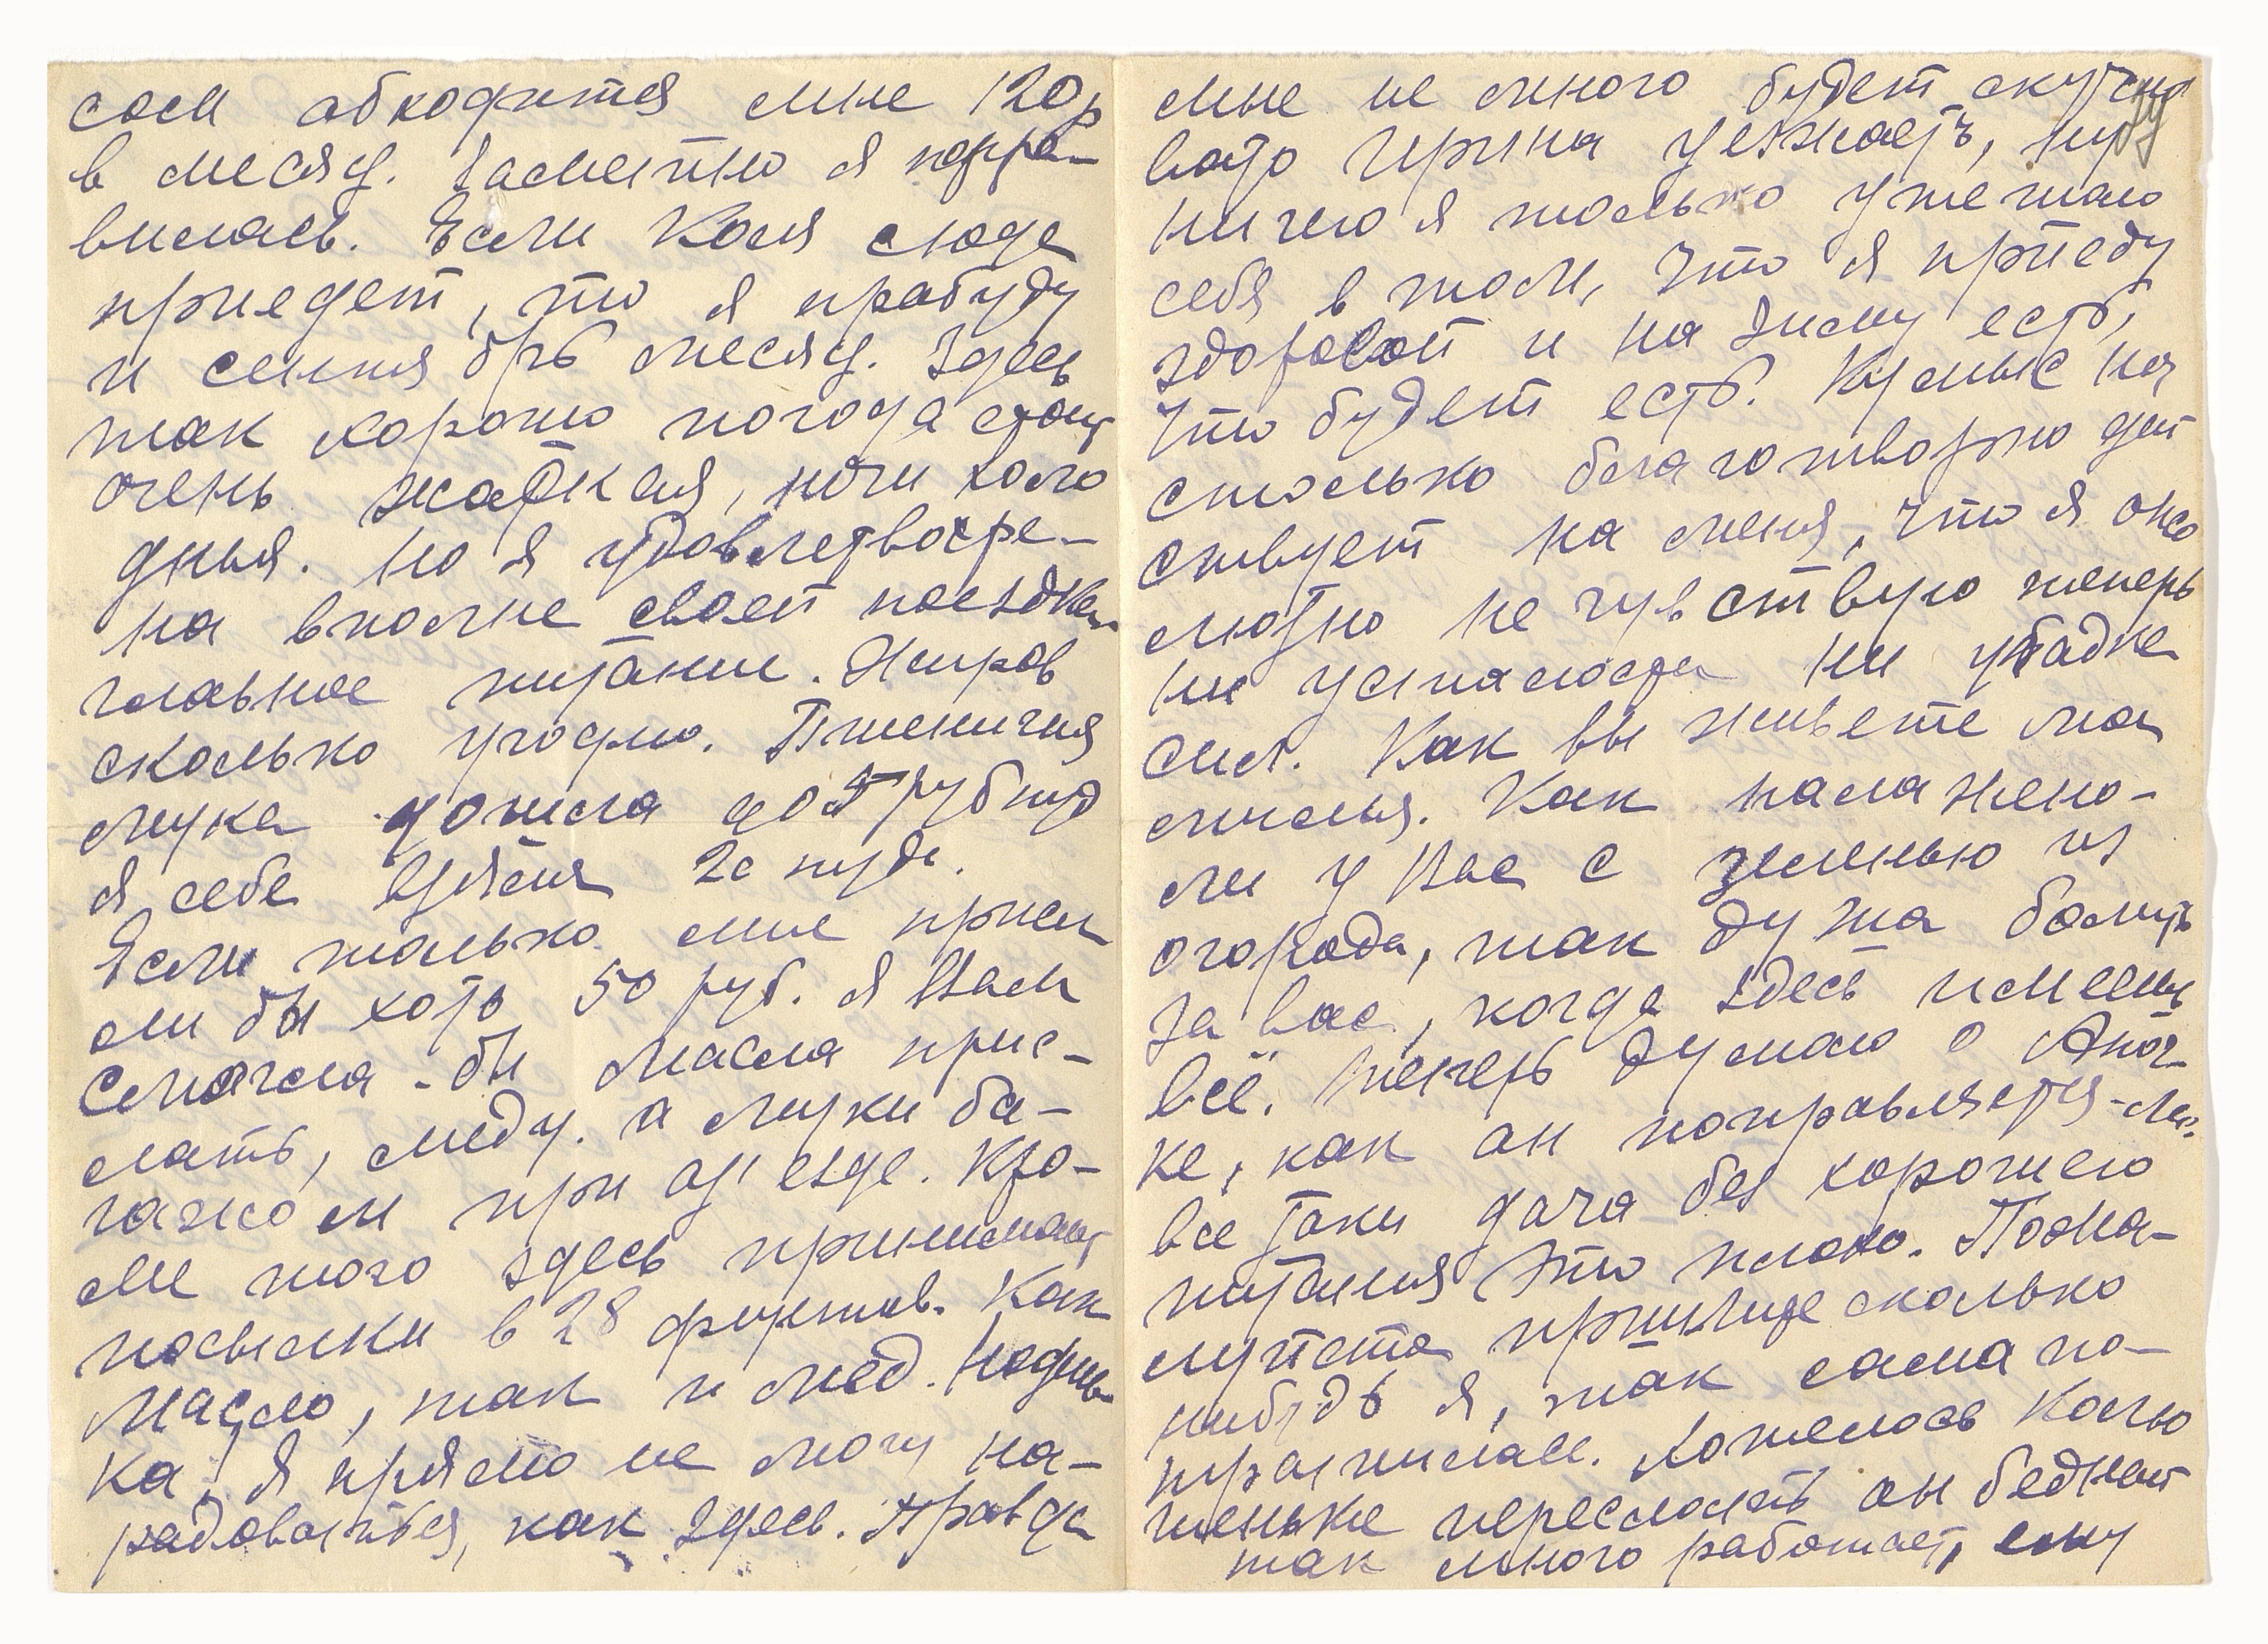 сом абходится мне 120р
в месяц. Заметно я попра-
вилась. Если Коля сюда
приедет, то я прабуду
и сентябрь месяц. Здесь
так хорошо погода стоит
очень жаркая, ночи холо
дныя. Но я удовлетворе-
на вполне своей поездкой
главное питание. Жиров
сколько угодно. Пшеничная
мука дошла до 5 руб пуд
я себе взяла 2 пуда.
Если только мне присл
али бы хоть 50 руб. я Вам
смогла-бы масла прис-
лать, меду. а муки ба-
гажом при от'езде. Кро-
ме того здесь принимают
посылки в 28 фунтов. Как
масло, так и мёд. Надень
ка, я прямо не могу на-
радоваться, как здесь. Правда
мне не много будет скучно
вато Ирина уезжаетъ, ну
ничего я только утешаю
себя в том, что я приеду
здоровой и на зиму есть,
что будет есть. Кумыс на
столько благотворно дей
ствует на меня, что я
не чувствую теперь
ни усталости ни упадка
сил. Как вы живете мои
милыя. Как налажено-
ли у Вас с зеленью из
огорода, так душа болитъ
за вас, когда здесь имеешь
всё. Теперь думаю о
ке, как он поправляется-ли?
все таки дача без хорошего
питания это плохо. Пожа-
луйста пришлите сколько
нибудь я, так сама по-
тратилась. Хотелось Колю
теньке переслать он бедный
так много работает, ему